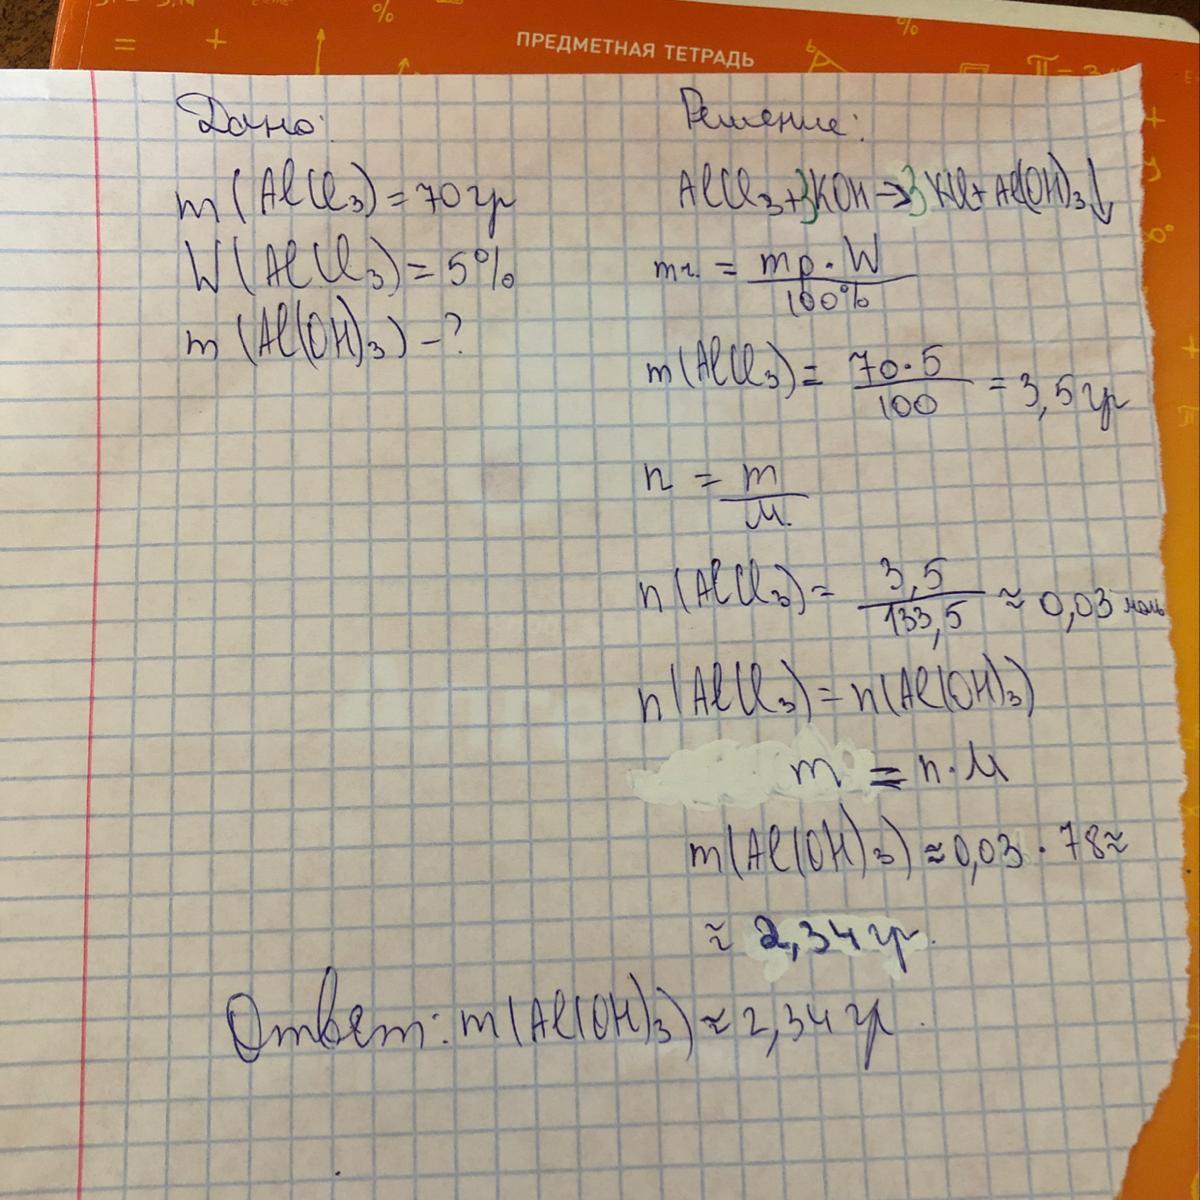 ПРЕДМЕТНАЯ ТЕТРАДЬ
Дано:
m(AlCl₃)=70гр
W(AlCl₃)=5%
m(Al(OH)₃)-?
Решение:
AlCl₃+3KOH→3KCl+Al(OH)₃↓
mч. = mр·W / 100%
m(AlCl₃)= 70·5 / 100 = 3,5гр
n = m / M.
n(AlCl₃)= 3,5 / 133,5 ≈ 0,03 моль
n(AlCl₃)=n(Al(OH)₃)
m = n·M
m(Al(OH)₃)≈0,03·78≈
≈ 2,34гр.
Ответ: m(Al(OH)₃)≈2,34гр.